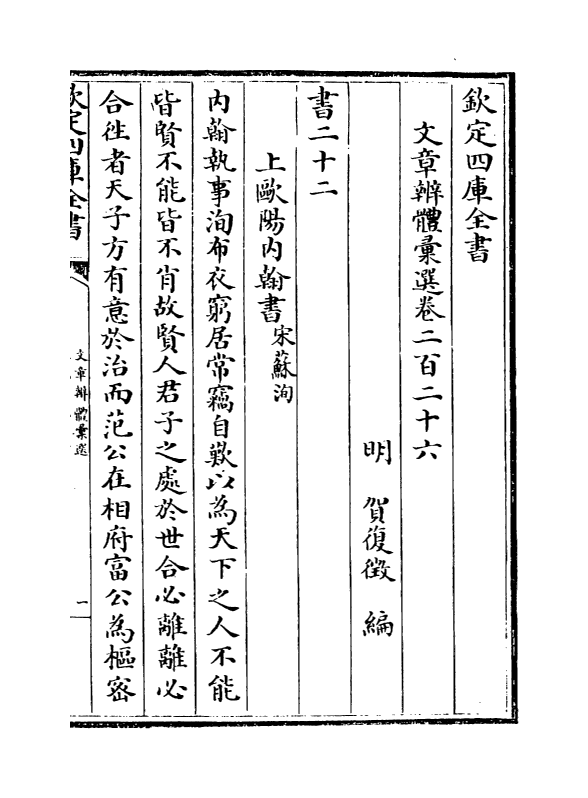 欽定四庫全書
文章辨體彚選卷二百二十六
明 賀復徵 編
書二十二
上歐陽内翰書宋蘇洵
内翰執事洵布衣窮居常竊自歎以為天下之人不能
皆賢不能皆不肖故賢人君子之處於世合必離離必
合徃者天子方有意於治而范公在相府富公為樞宻
欽定四庫全書
文章辨體彚選
一